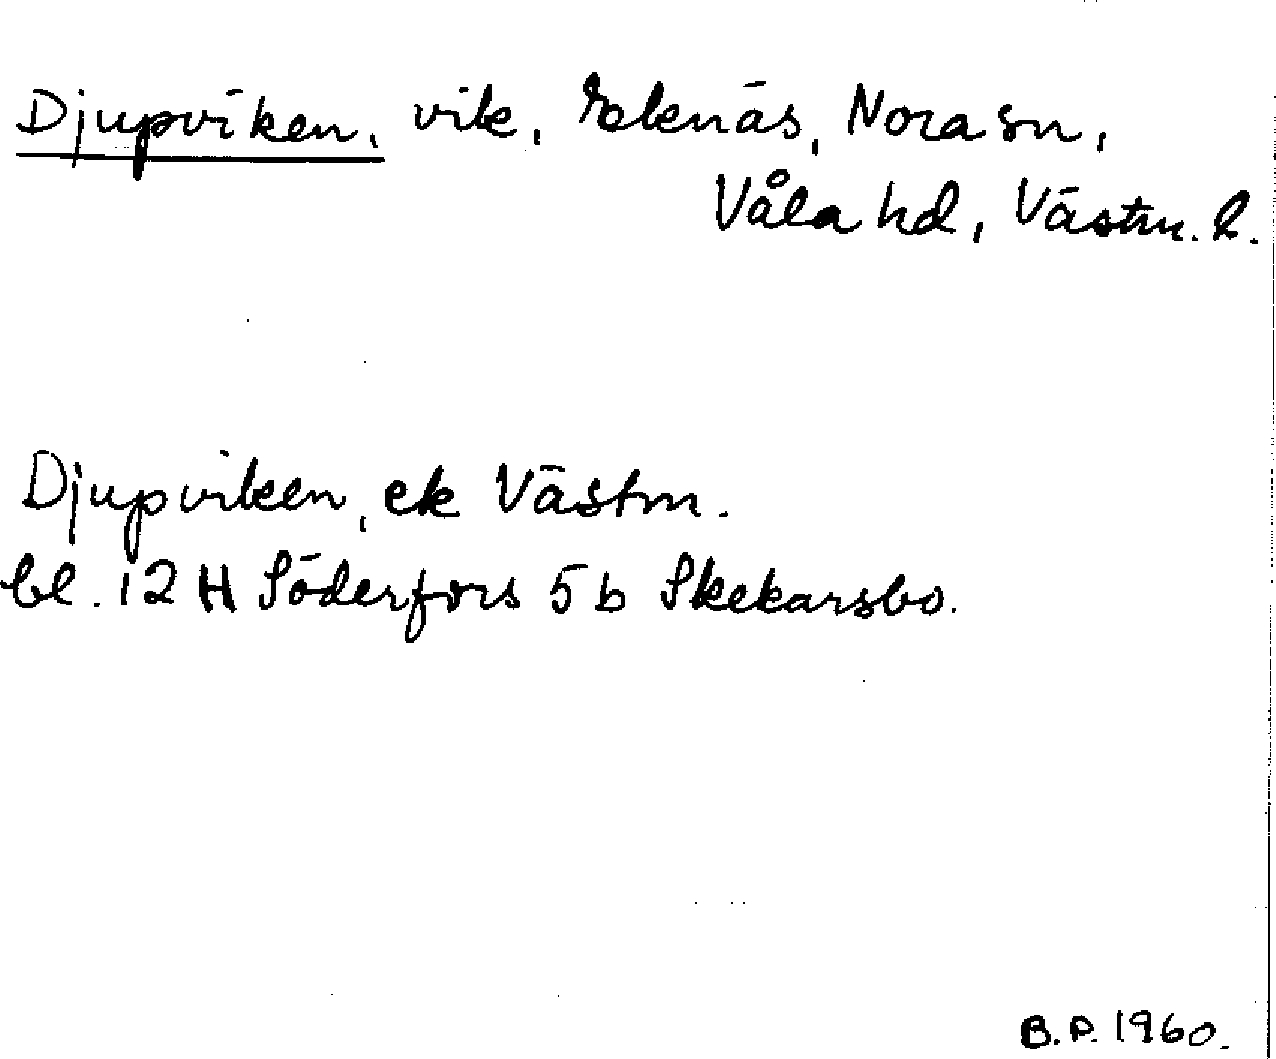 Djupviken, vik, Eknäs, Nora sn,
Våla hd, Västm. l.
Djupviken, ek Västm.
bl. 12 H Söderfors 5 b Skekarsbo.
B.P. 1960.